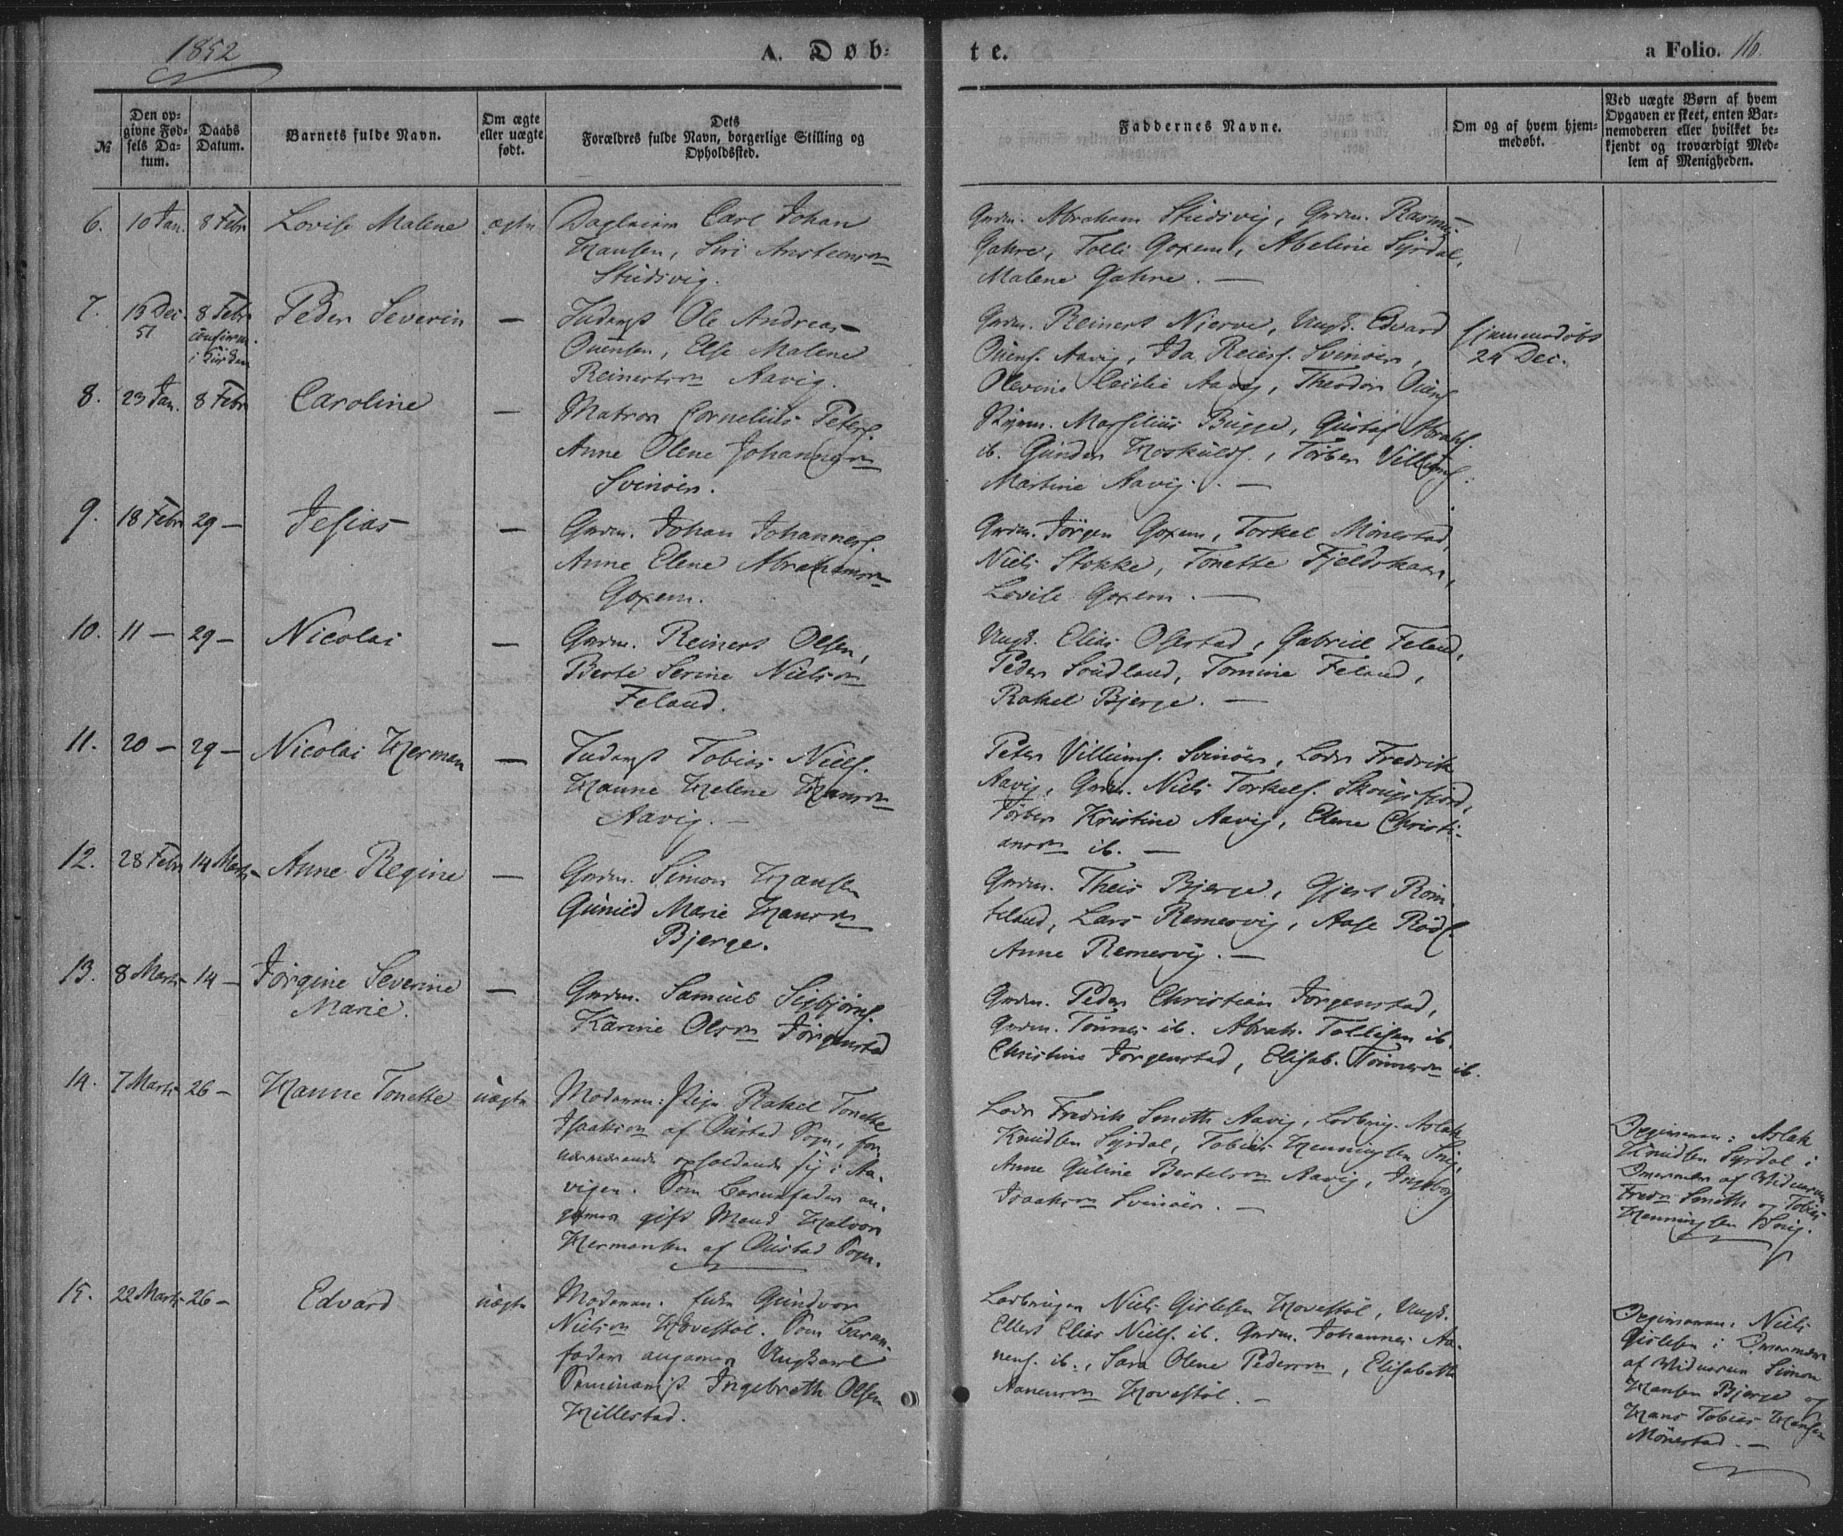 1852
A. Døb-
te.
a Folio. 16.
№
Den op-
givne Fød-
sels Da-
tum.
Daabs
Datum.
Barnets fulde Navn.
Om ægte
eller uægte
født.
Dets
Forældres fulde Navn, borgerlige Stilling og
Opholdssted.
Faddernes Navne.
Om og af hvem hjem-
medøbt.
Ved uægte Børn af hvem
Opgaven er skeet, enten Bar-
nemoderen eller hvilket be-
kjendt og troværdigt Med-
lem af Menigheden.
6. 10 Jan. 8 Febr Lovise Malene ægte Carl Johan
Hansen, Siri
Studsvig.
Grdm. Abraham Studsvig, Grdm. Rasmus
Gahre, Tolli Goxem, Abeline Syrdal,
Malene Gahre. —
7. 51 8 Febr
i Kirken
Peder Severin —
Inderst Ole Andreas
Ouensen, Else Malene
Reinertsn Aavig.
Grdm. Reinert Nierve, Ungk. Edvard
Ouens. Aavig, Ida Reiers. Svinöer,
Olevine Cecilie Aavig, Theodor Ouens.
hjemmedøbt
24 Dec.
8. 23 Jan. 8 Febr Caroline —
Matros Cornelius Peters.
Anne Olene
Svinöer.
Bugge, Gustaf Abrah.
ib. Gunder Torber
Martine Aavig. —
9. 18 Febr 29 — Jesias —
Grdm. Johan Johannes.
Anne Elene Abrahamsn
Goxem.
Grdm. Jörgen Goxem, Torkel Mönestad,
Niels Stokke, Tonette Fjeldskaar,
Lovise Goxem. —
10. 11 — 29 — Nicolai —
Grdm. Reinert Olsen,
Berte Serine Nielsn
Feland.
Ungk. Elias Ofsestad, Gabriel Feland,
Peder Soudland, Tomine Feland,
Rakel Bjerge. —
11. 20 — 29 — Nicolai Herman —
Inderst Tobias Niels.
Hanne Helene Hansn
Aavig. —
Peter Villums. Svinöer, Lods Fredrik
Aavig, Grdm. Niels Torkels. Skougsfjord,
Torber Kristine Aavig, Elene Christi-
ansn ib. —
12. 28 Febr 14 Marts Anne Regine —
Grdm. Simon Hansen
Gunild Marie Hansn
Bjerge.
Grdm. Theis Bjerge, Gjert Röm-
teland, Lars Remesvig, Aase Röds.
Anne Remesvig. —
13. 8 Marts 14 — Jörgine Severine
Marie. —
Grdm. Samuel Sigbjörns.
Karine Olsn Jörgenstad
Grdm. Peder Christian Jörgenstad,
Grdm. Tönnes ib. Abrah. Tollisen ib.
Christine Jörgenstad, Elisab. Tönnesn ib.
14. 7 Marts 26 — Hanne Tonette uægte
Moderen: Pige Rakel Tonette
Isaaksn af Oustad Sogn, for
nærværende opholdende sig i Aa-
vigen. Som Barnefader an-
gives gift Mand Halvor
Hermansen af Oustad Sogn.
Lods Fredrik Smith Aavig, Aslak
Knudsen Syrdal, Tobias Henningsen Snig,
Anne Guline Bertelsn Aavig, Ingeborg
Isaaksn Svinöer. —
Aslak
Knudsen Syrdal i
Overvær af Vidnerne
Fredr Smith og Tobias
Henningsen Snig.
15. 22 Marts 26 — Edvard uægte
Moderen: Enke Gundvor
Nielsn Hovestöl. Som Barne-
fader angives Ungkarl
Seminarist Ingebreth Olsen
Hillestad.
Niels Gislesen Hovestöl, Ungk.
Ellert Elias Niels. ib. Grdm. Johannes Aa-
nens. ib., Sara Olene Pedersn, Elisabeth
Aanensn Hovestöl. —
Niels
Gislesen i Overvær
af Vidnerne Simon
Hansen Bjerge og
Hans Tobias Hansen
Mönestad. —